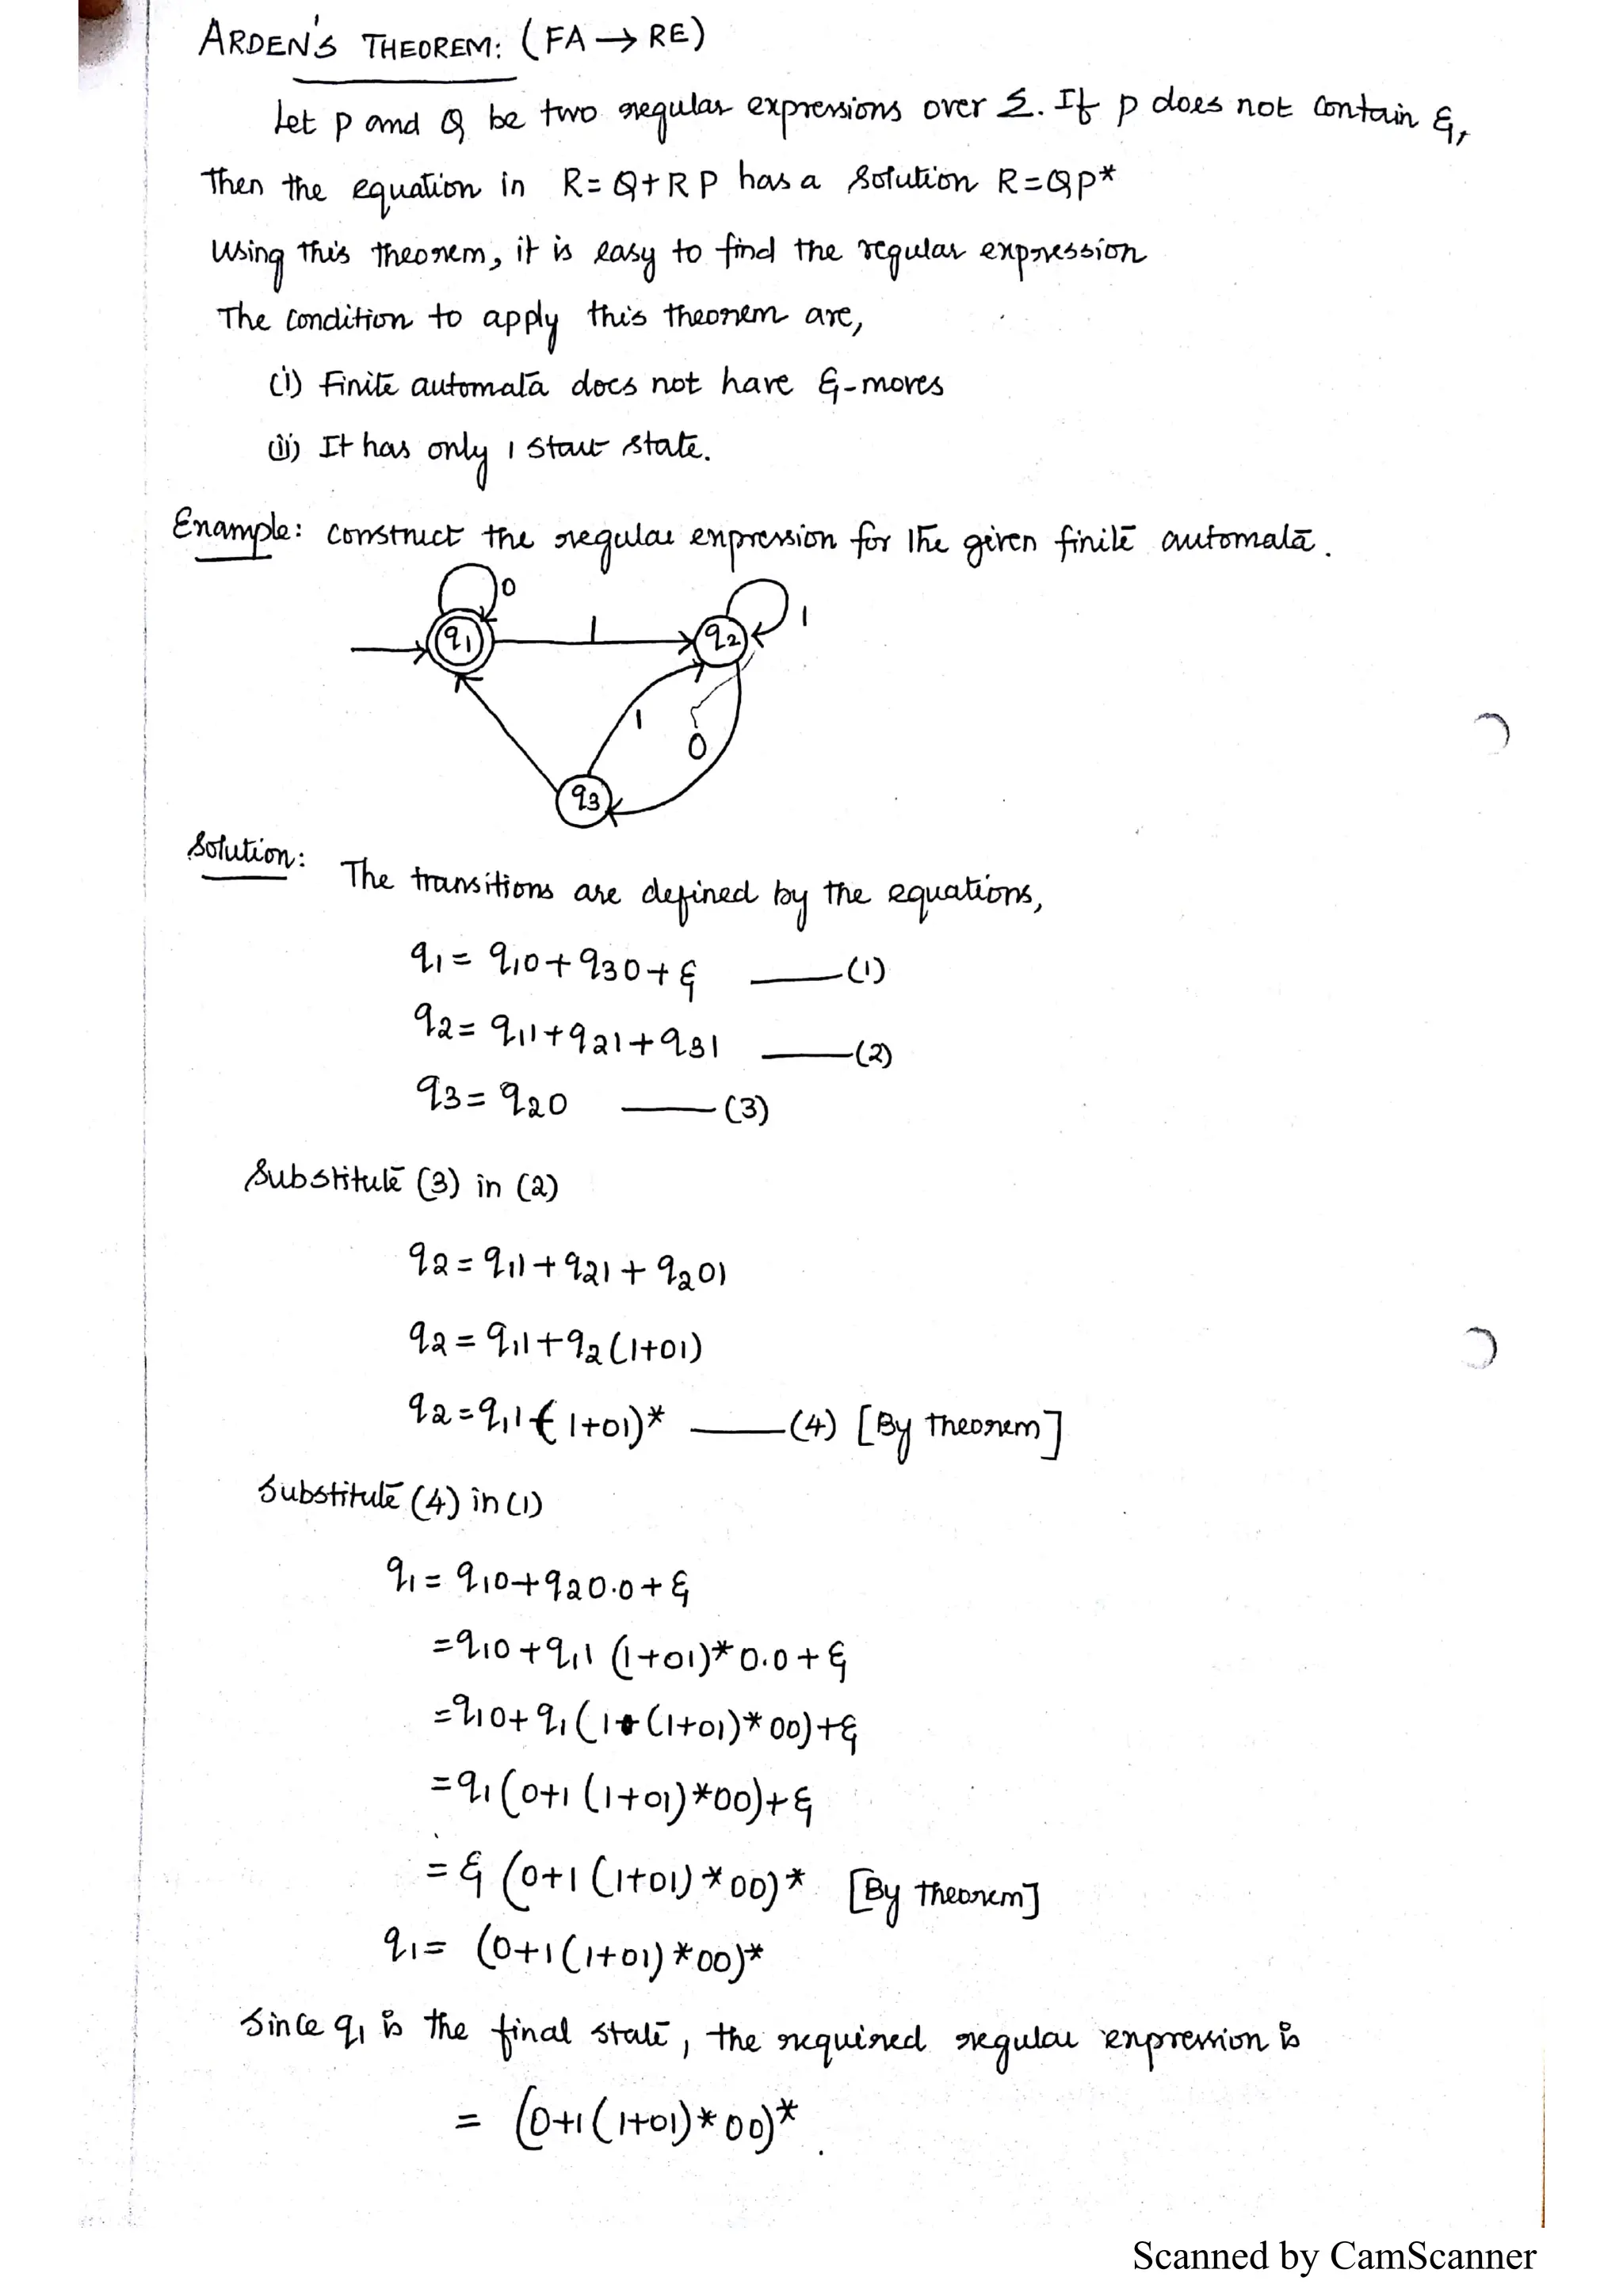 ARDEN'S THEOREM: (FA → RE)
Let P and Q be two regular expressions over Σ. If P does not contain ε,
Then the equation in R = Q + RP has a solution R = QP*
Using this theorem, it is easy to find the regular expression
The condition to apply this theorem are,
(i) Finite automata does not have ε-moves
(ii) It has only 1 start state.
Example: Construct the regular expression for the given finite automata.
0
1
1
q1
q2
1
0
q3
Solution: The transitions are defined by the equations,
q1 = q10 + q30 + ε ——(1)
q2 = q11 + q21 + q31 ——(2)
q3 = q20 ——(3)
Substitute (3) in (2)
q2 = q11 + q21 + q201
q2 = q11 + q2(1+01)
q2 = q11(1+01)* ——(4) [By theorem]
Substitute (4) in (1)
q1 = q10 + q20.0 + ε
= q10 + q11 (1+01)* 0.0 + ε
= q10 + q1(1(1+01)* 00) + ε
= q1(0+1(1+01)*00) + ε
= ε (0+1(1+01)*00)* [By theorem]
q1 = (0+1(1+01)*00)*
Since q1 is the final state, the required regular expression is
= (0+1(1+01)*00)*.
Scanned by CamScanner